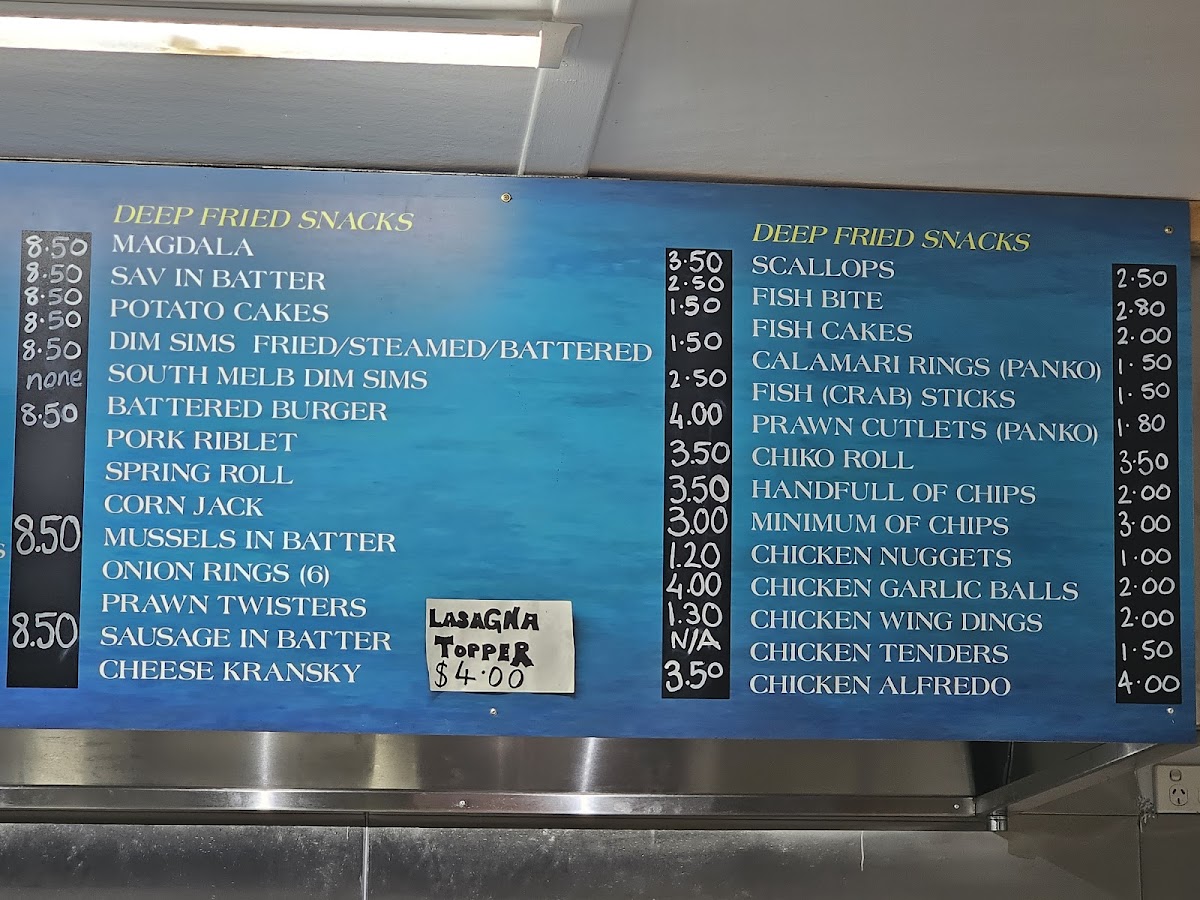 8.50
8.50
8.50
8.50
8.50
none
8.50
8.50
8.50
DEEP FRIED SNACKS
MAGDALA 3.50
SAV IN BATTER 2.50
POTATO CAKES 1.50
DIM SIMS FRIED/STEAMED/BATTERED 1.50
SOUTH MELB DIM SIMS 2.50
BATTERED BURGER 4.00
PORK RIBLET 3.50
SPRING ROLL 3.50
CORN JACK 3.00
MUSSELS IN BATTER 1.20
ONION RINGS (6) 4.00
PRAWN TWISTERS 1.30
SAUSAGE IN BATTER N/A
CHEESE KRANSKY 3.50
LASAGNA
TOPPER
$4.00
DEEP FRIED SNACKS
SCALLOPS 2.50
FISH BITE 2.80
FISH CAKES 2.00
CALAMARI RINGS (PANKO) 1.50
FISH (CRAB) STICKS 1.50
PRAWN CUTLETS (PANKO) 1.80
CHIKO ROLL 3.50
HANDFULL OF CHIPS 2.00
MINIMUM OF CHIPS 3.00
CHICKEN NUGGETS 1.00
CHICKEN GARLIC BALLS 2.00
CHICKEN WING DINGS 2.00
CHICKEN TENDERS 1.50
CHICKEN ALFREDO 4.00